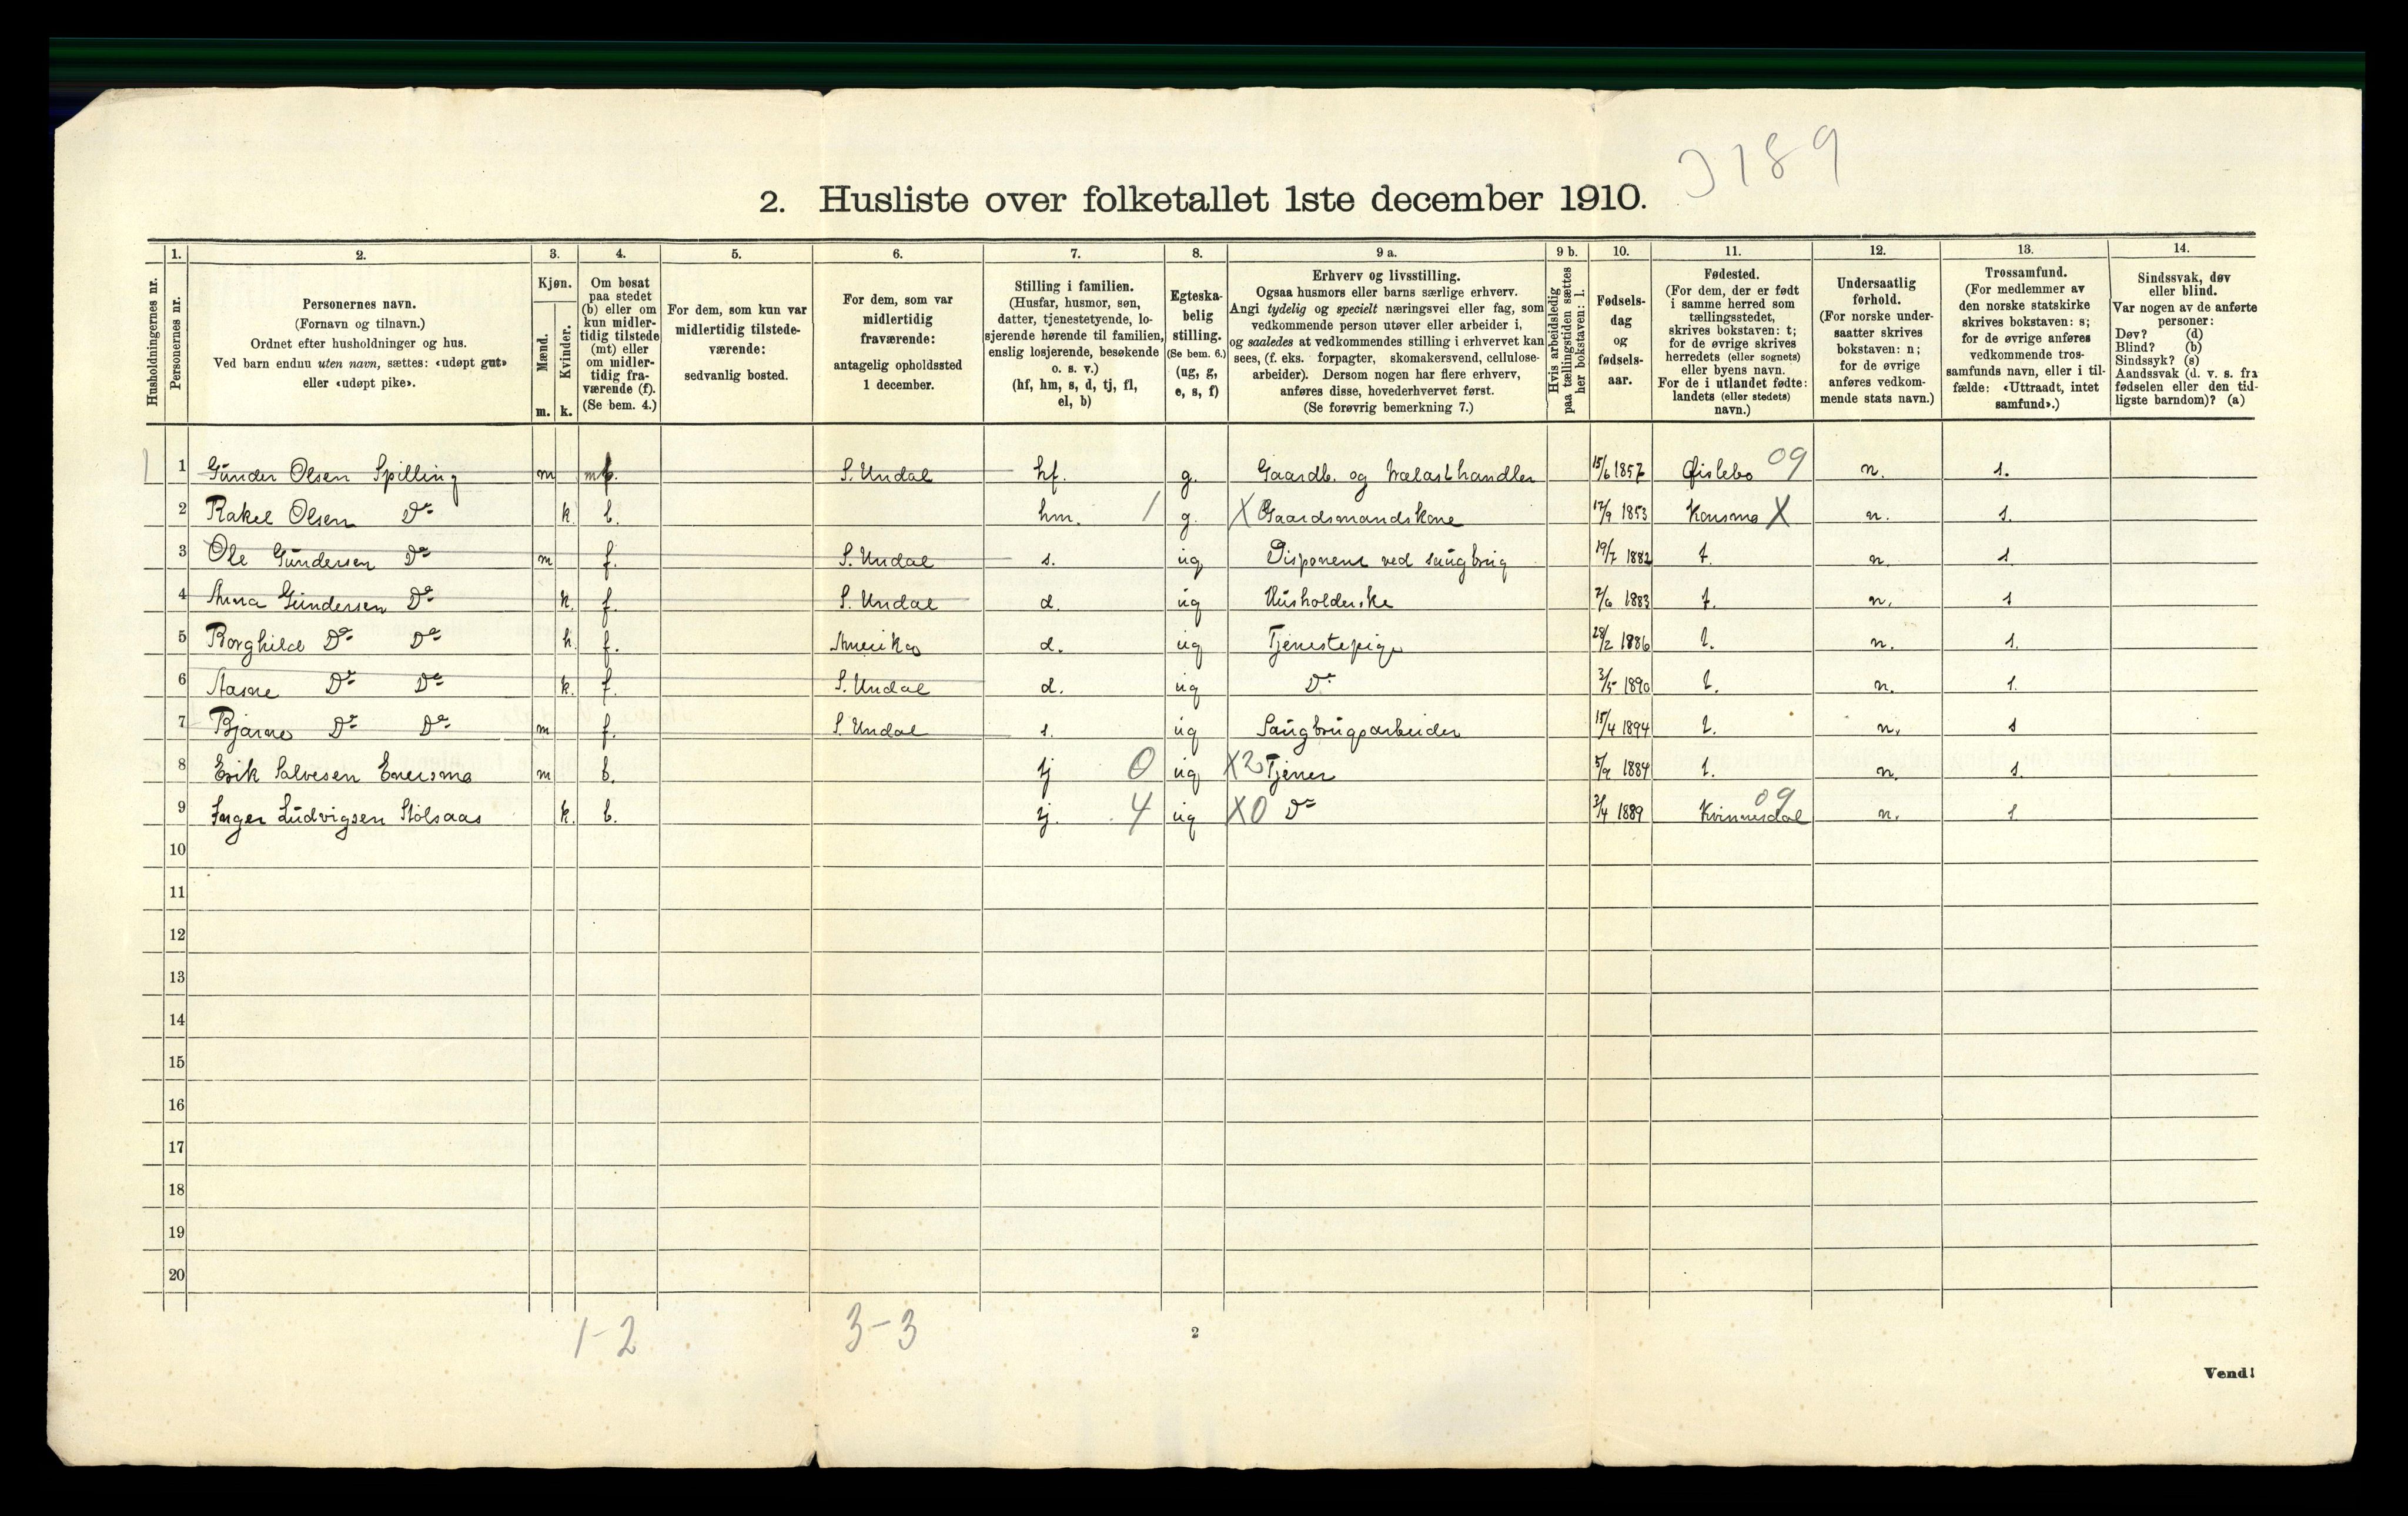 J 189
2. Husliste over folketallet 1ste december 1910.
Husholdningernes nr.
1.
Personernes nr.
2.
Personernes navn.
(Fornavn og tilnavn.)
Ordnet efter husholdninger og hus.
Ved barn endnu uten navn, sættes: «udøpt gut»
eller «udøpt pike».
3.
Kjøn.
Mænd.
Kvinder.
m. k.
4.
Om bosat
paa stedet
(b) eller om
kun midler-
tidig tilstede
(mt) eller
om midler-
tidig fra-
værende (f).
(Se bem. 4.)
5.
For dem, som kun var
midlertidig tilstede-
værende:
sedvanlig bosted.
6.
For dem, som var
midlertidig
fraværende:
antagelig opholdssted
1 december.
7.
Stilling i familien.
(Husfar, husmor, søn,
datter, tjenestetyende, lo-
sjerende hørende til familien,
enslig losjerende, besøkende
o. s. v.)
(hf, hm, s, d, tj, fl,
el, b)
8.
Egteska-
belig
stilling.
(Se bem. 6.)
(ug, g,
e, s, f)
9 a.
Erhverv og livsstilling.
Ogsaa husmors eller barns særlige erhverv.
Angi tydelig og specielt næringsvei eller fag, som
vedkommende person utøver eller arbeider i,
og saaledes at vedkommendes stilling i erhvervet kan
sees, (f. eks. forpagter, skomakersvend, cellulose-
arbeider). Dersom nogen har flere erhverv,
anføres disse, hovederhvervet først.
(Se forøvrig bemerkning 7.)
9 b.
Hvis arbeidsledig
paa tællingstiden sættes
her bokstaven: l.
10.
Fødsels-
dag
og
fødsels-
aar.
11.
Fødested.
(For dem, der er født
i samme herred som
tællingsstedet,
skrives bokstaven: t;
for de øvrige skrives
herredets (eller sognets)
eller byens navn.
For de i utlandet fødte:
landets (eller stedets)
navn.)
12.
Undersaatlig
forhold.
(For norske under-
saatter skrives
bokstaven: n;
for de øvrige
anføres vedkom-
mende stats navn.)
13.
Trossamfund.
(For medlemmer av
den norske statskirke
skrives bokstaven: s;
for de øvrige anføres
vedkommende tros-
samfunds navn, eller i til-
fælde: «Uttraadt, intet
samfund».)
14.
Sindssvak, døv
eller blind.
Var nogen av de anførte
personer:
Døv? (d)
Blind? (b)
Sindssyk? (s)
Aandssvak (d. v. s. fra
fødselen eller den tid-
ligste barndom)? (a)
1 1 Gunder Olsen Spilling m S. Undal hf. g. Gaardb. og Trælasthandler 15/6 1857 Øislebo 09 n. s.
2 Rakel Olsen Do k. b. hm. 1 g. X Gaardsmandskone 17/9 1853 Konsmo X n. s.
3 Ole Gundersen Do m f. S. Undal s. ug Disponent ved saugbrug 19/7 1882 t. n. s
4 Anna Gundersen Do k. f. S. Undal d. ug Husholderske 7/6 1883 t. n. s
5 Borghild Do Do k. f. Amerika d. ug Tjenestepige 28/2 1886 t. n. s.
6 Aasne Do Do k. f. S. Undal d. ug Do 3/5 1890 t. n. s.
7 Bjarne Do Do m f. S. Undal s. ug Saugbrugsarbeider 15/4 1894 t. n. s
8 Erik Salvesen Eversmo m b. tj 0 ug X2 Tjener 5/9 1884 t. n. s.
9 Inger Ludvigsen Stolsaas k. b. tj. 4 ug X0 Do 3/4 1889 Kvinnesdal 09 n. s
10
11
12
13
14
15
16
17
18
19
20
1-2 3-3
2
Vend!